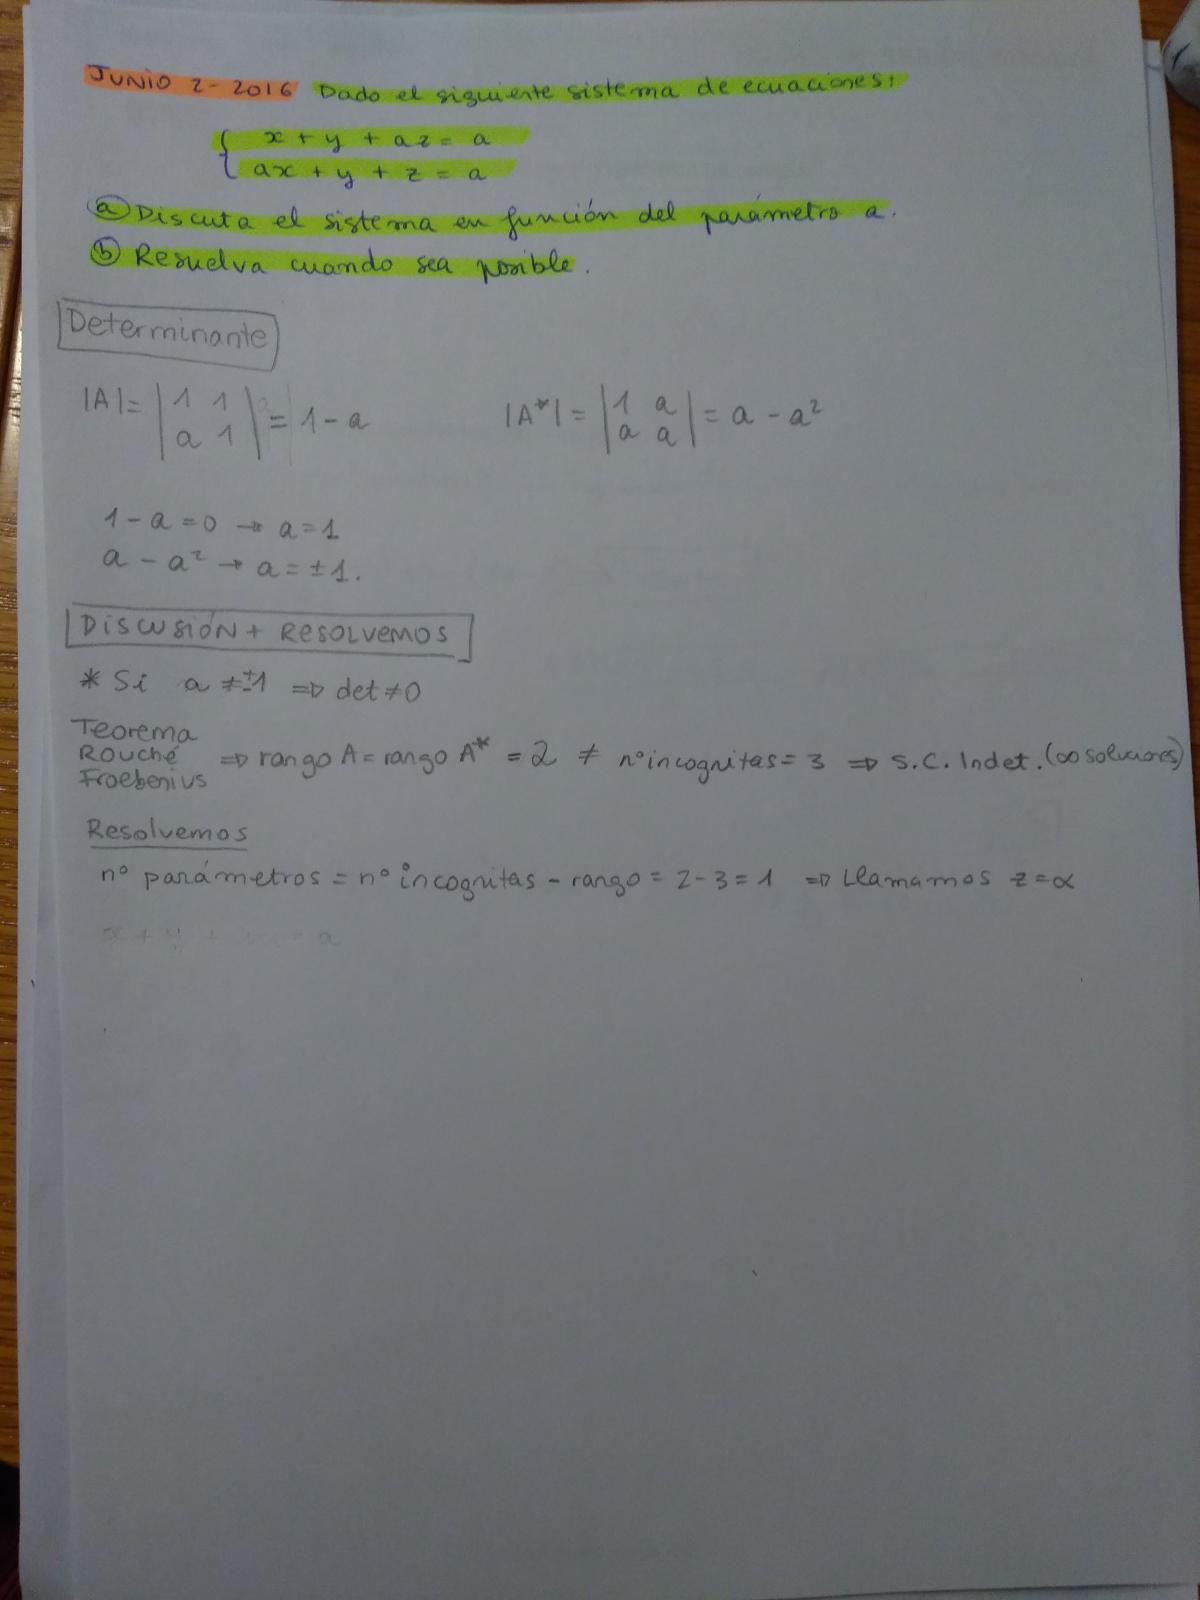 JUNIO 2-2016 Dado el siguiente sistema de ecuaciones:
{ x + y + az = a
ax + y + z = a
a) Discuta el sistema en función del parámetro a.
b) Resuelva cuando sea posible.
Determinante
|A| = | 1 1 | = 1 - a |A*| = | 1 a | = a - a²
| a 1 | | a a |
1 - a = 0 → a = 1
a - a² → a = ±1.
DISCUSIÓN + RESOLVEMOS
* Si a ≠ ±1 ⇒ det ≠ 0
Teorema
Rouché ⇒ rango A = rango A* = 2 ≠ nº incognitas = 3 ⇒ S.C. Indet. (∞ soluciones)
Froebenius
Resolvemos
nº parámetros = nº incognitas - rango = 2 - 3 = 1 ⇒ Llamamos z = α